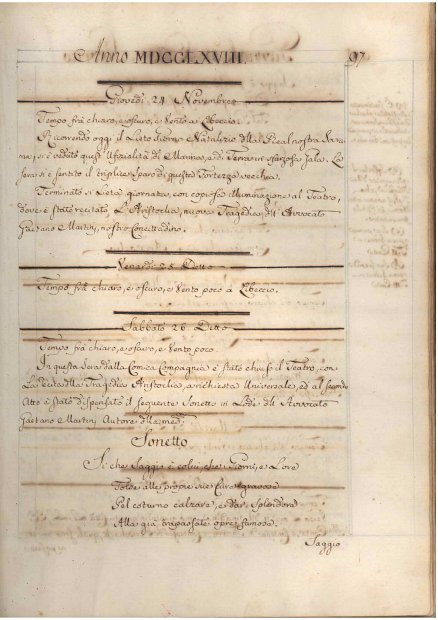 Anno MDCCLXVIII.
97
Giovedì 24 Novembre
Tempo frà chiaro, e oscuro, e Vento a Libeccio.
Ricorrendo oggi il Lieto Giorno Natalizio della Real nostra Sovra-
na, si è veduto quest' Ufizialità di Marina, e di Terra in sfarzosa Gala. La
sera si è sentito il triplice sparo di questa Fortezza vecchia.
Terminato si lieta giornata, con copiosa illuminazione al Teatro,
dove è stata recitata L'Aristoclia, nuova Tragedia, del Avvocato
Gaetano Martini, nostro Concittadino.
Venardì 25 Detto
Tempo frà chiaro, e oscuro, e Vento poco a Libeccio.
Sabbato 26 Ditto
Tempo frà chiaro, e oscuro, e Vento poco.
In questa Sera dalla Comica Compagnia è stato chiuso il Teatro, con
La Recita della Tragedia Aristoclia, a richiesta Universale, ed al secondo
Atto è stato dispensato il seguente Sonetto in Lode del Avvocato
Gaetano Martini Autore della med.
Sonetto
Sì che Saggio è colui, che Giorni, e Lore
Tolse alle proprie sue Cure gravose
Pel coturno calzare, e dar Splendore
Alla già trapassate opre famose.
Saggio